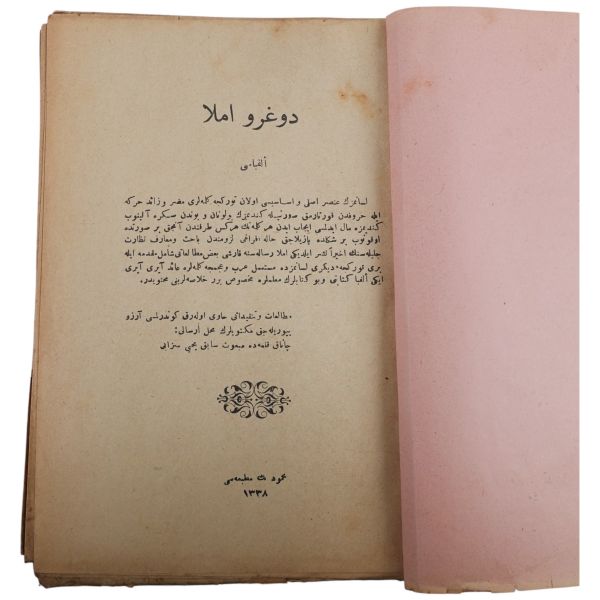 دوغرو املا
الفباسی
لسانمزك عنصر اصلی و اساسیسی اولان توركجه كلمه‌لری مضر و زائد حركه
ایله حروفدن قورتارمق صورتیله كندیمزك بولونان و بوندن سكره آلینوب
كندیمزه مال ایدلمسی ایجاب ایدن هر كلمه‌نك هركس طرفندن آنجق بر صورتده
اوقونوب بر شكلده یازیلاجق حاله افراغی لزومندن باحث ومعارف نظارت
جلیله‌سنك اخیراً نشر ایلدیكی املا رساله‌سنه قارشی بعض مطالعاتی شامل مقدمه ایله
بری توركجه دیگری لسانمزده مستعمل عرب و عجمجه كلمه‌لره عائد آیری آیری
ایكی الفبا كتابی و بو كتابلرك معلملره مخصوص برر خلاصه‌لرینی محتویدر.
مطالعات و تنقیداتی حاوی اوله‌رق كوندرلمسی آرزو
بیوریله‌جق مكتوبلرك محل ارسالی:
چاناق قلعه‌ده مبعوث سابق یحیی سزایی
محمود بك مطبعه‌سی
١٣٣٨